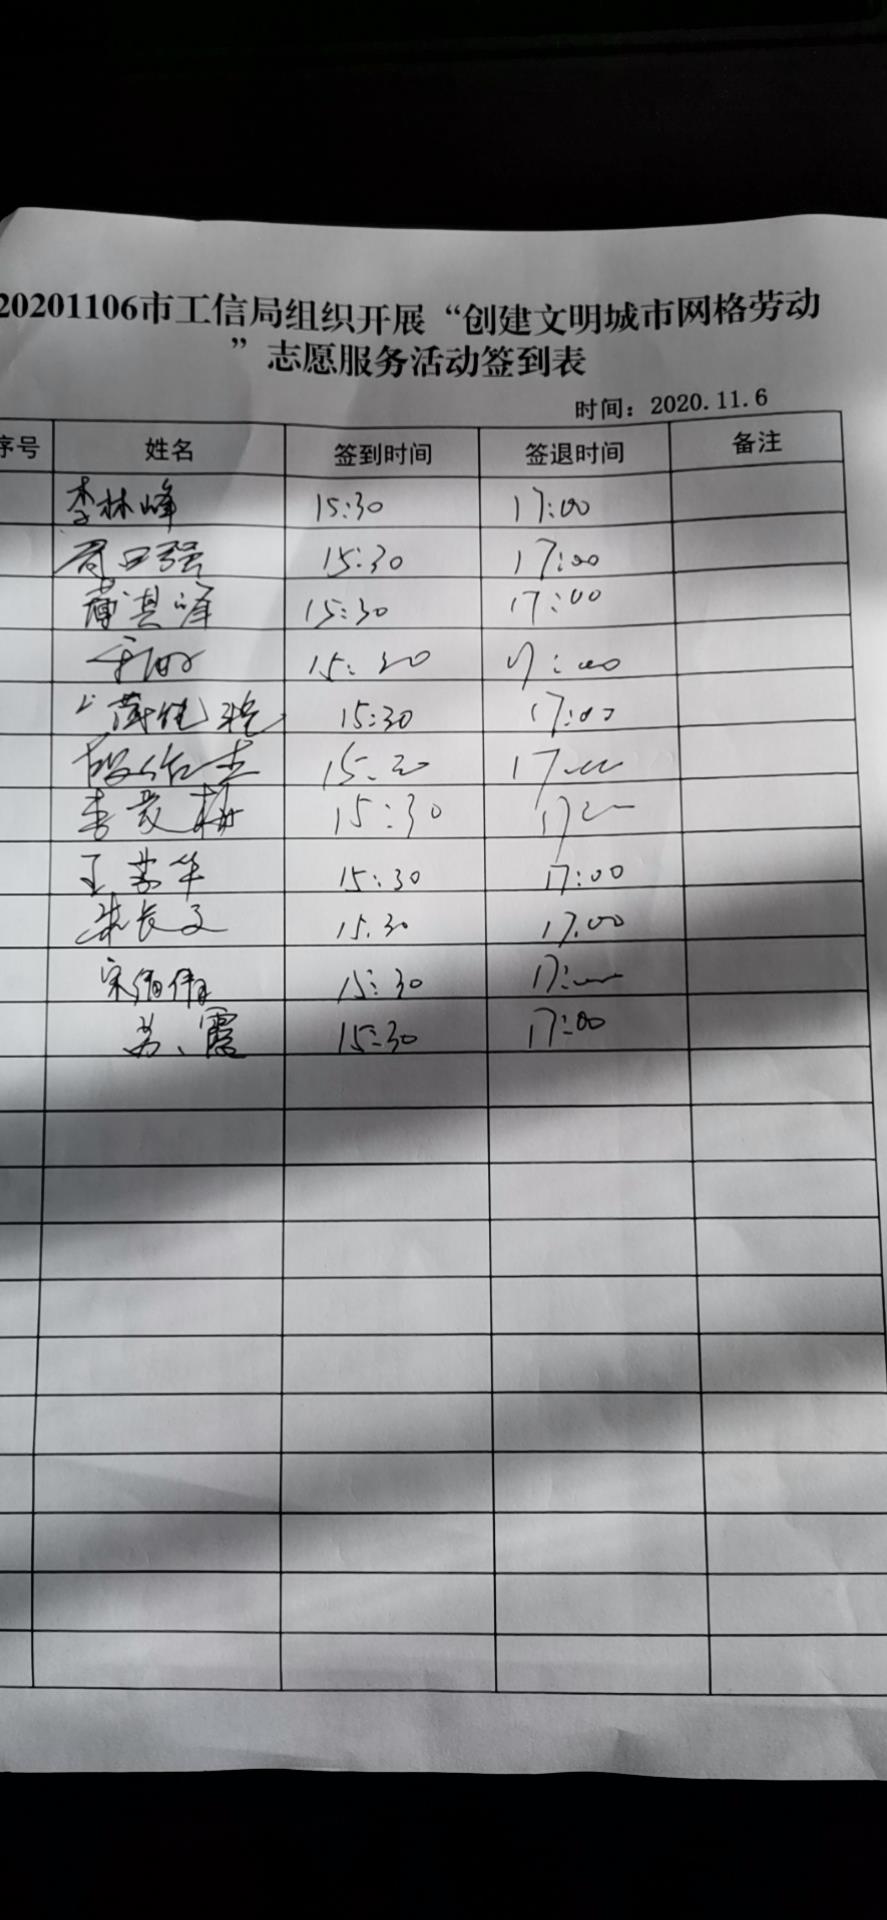 20201106市工信局组织开展“创建文明城市网格劳动
”志愿服务活动签到表
时间：2020.11.6
序号 姓名 签到时间 签退时间 备注
李林峰 15:30 17:00
周卫强 15:30 17:00
薄其峰 15:30 17:00
15:30 17:00
15:30 17:00
15:30 17:00
李爱梅 15:30 17:00
王苏华 15:30 17:00
朱长文 15.30 17.00
宋伯伟 15:30 17:00
苏、霞 15:30 17:00